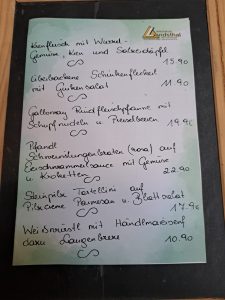 Landsthal
Krenfleisch mit Wurzel-
Gemüse, Kren und Salzerdäpfel
15.90
Überbackene Schinkenfleckerl
mit Gurkensalat 11.90
Galloway Rindfleischpfanne mit
Schupfnudeln u Preiselbeeren
19.90
Pfandl
(rosa) auf
Eierschwammerlsauce mit Gemüse
u Kroketten 22.90
Steinpilz Tortellini auf
Pilzcreme Parmesan u Blattsalat
17.90
Weißwürstl mit Händlmaiersenf
dazu Laugenbreze 10.90